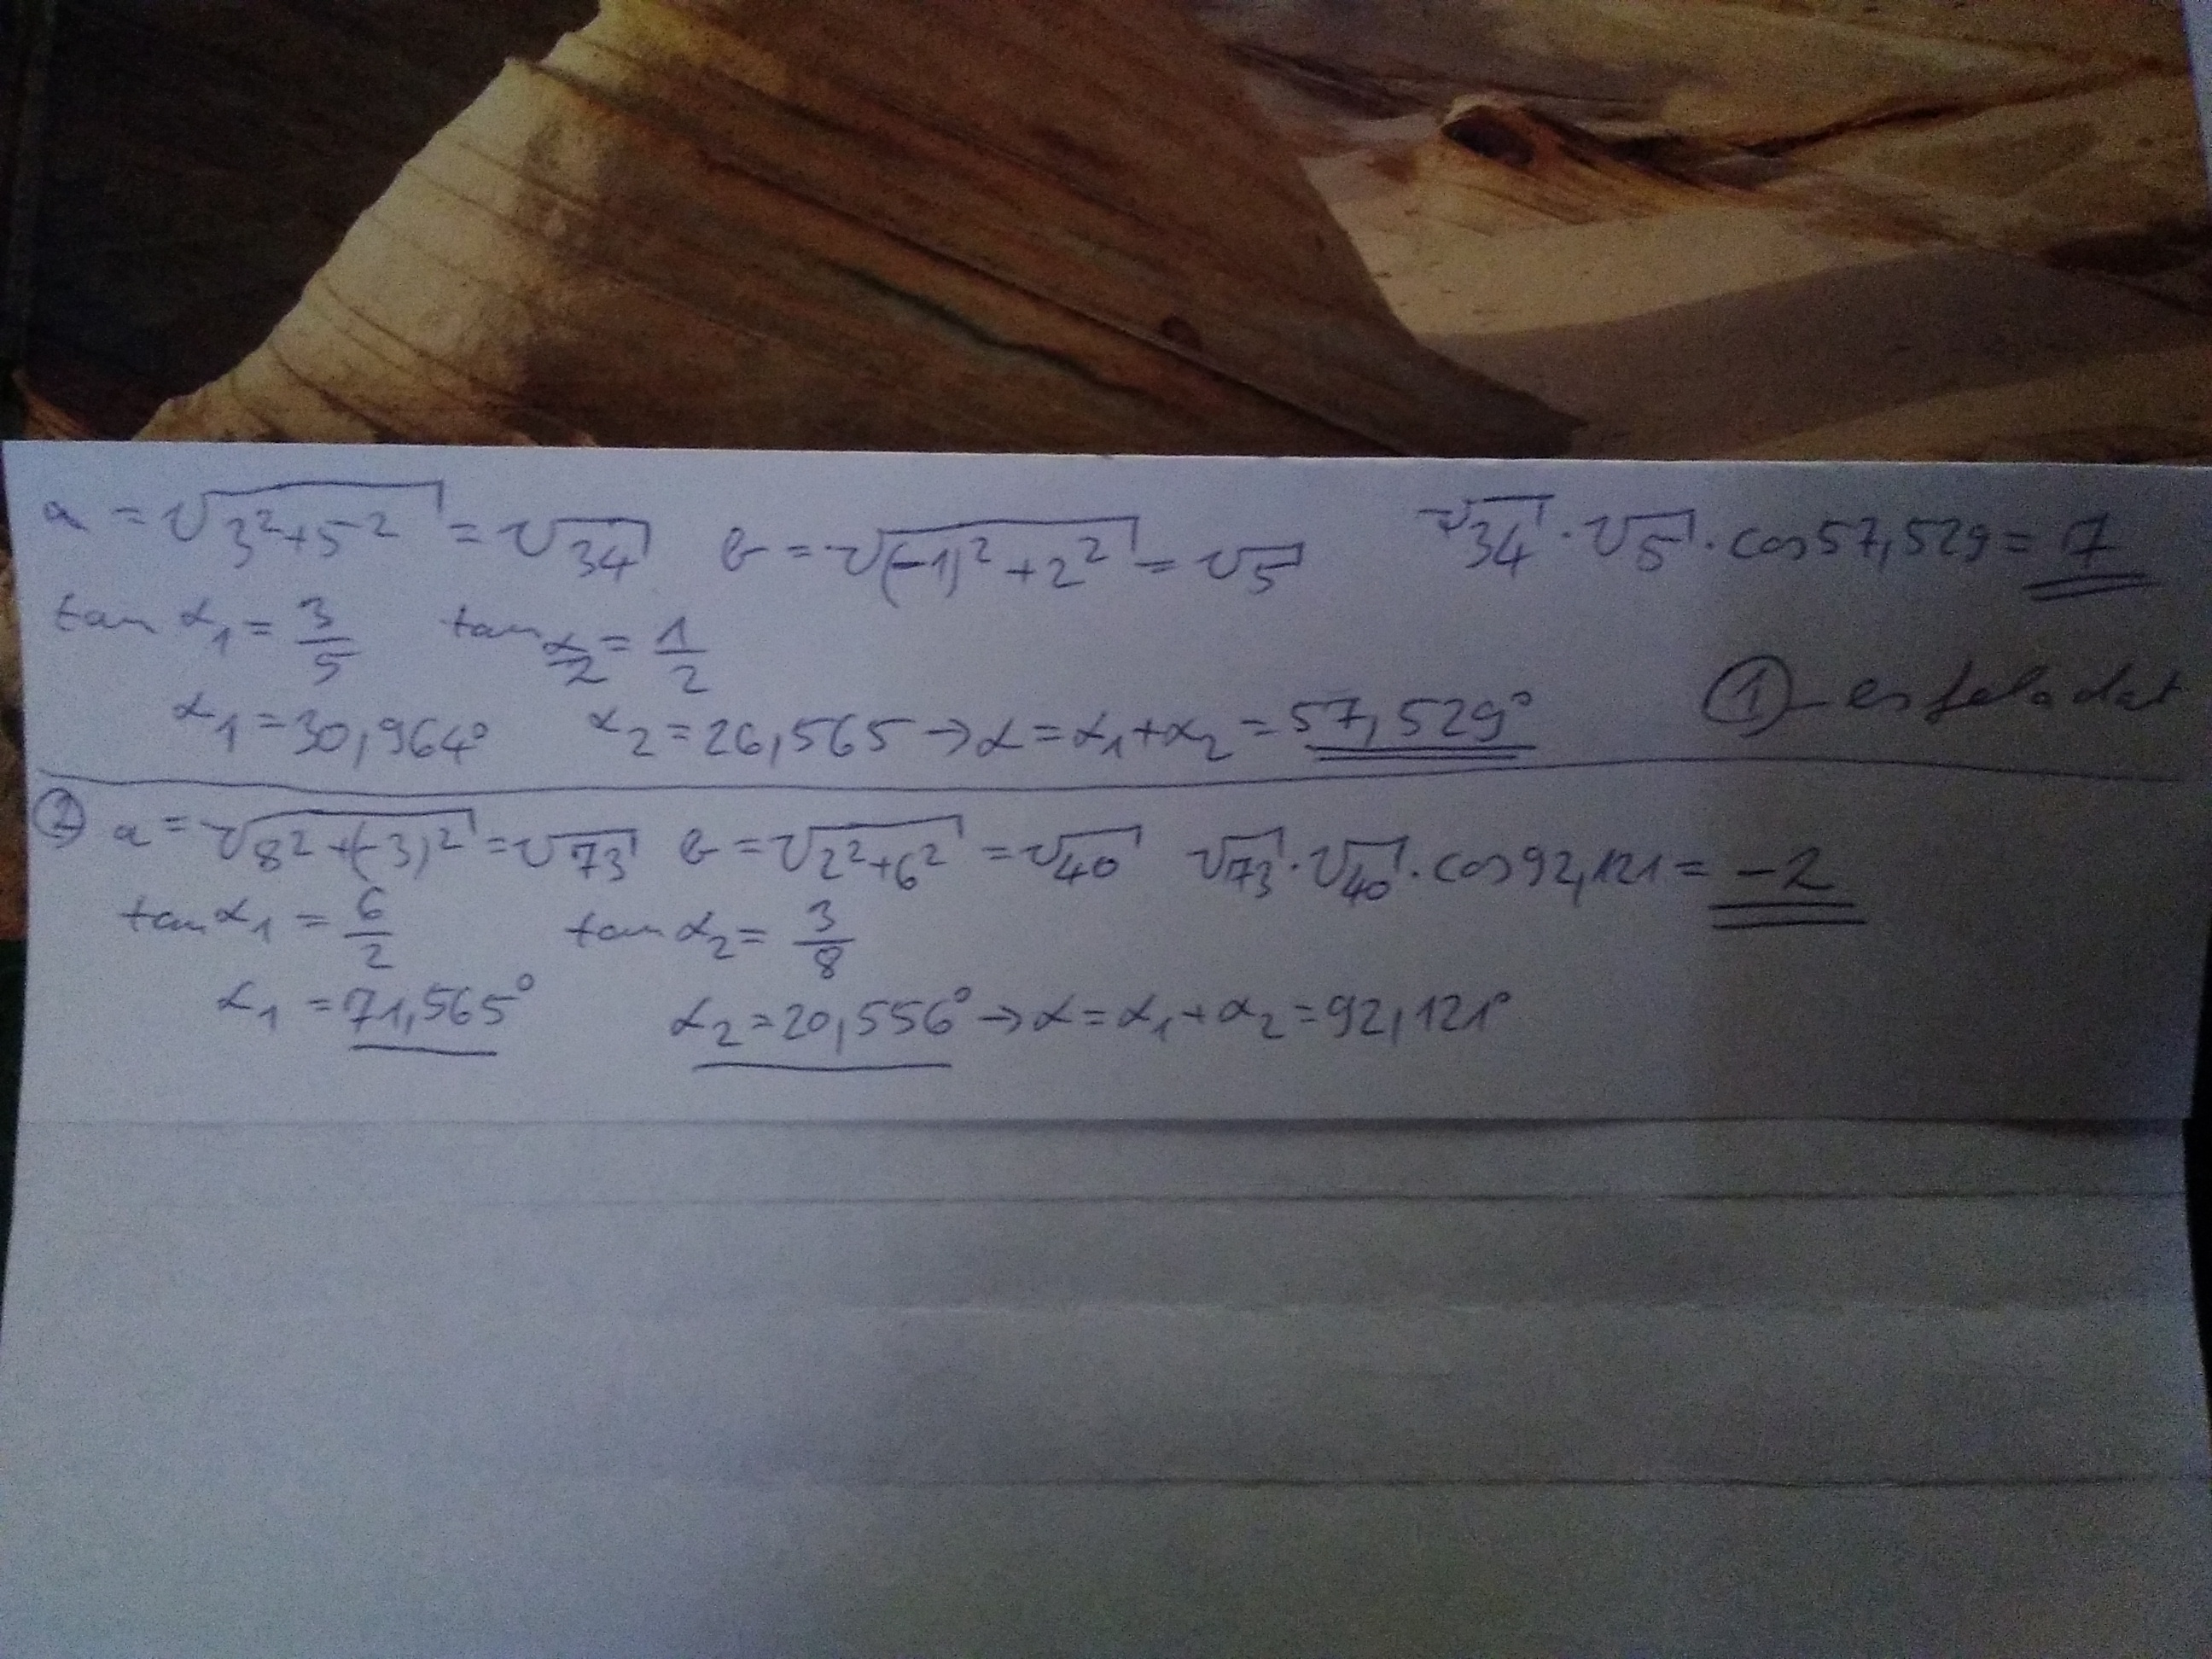 a = √3²+5² = √34 b = √(-1)²+2² = √5 √34 · √5 · cos 57,529 = 7
tan α₁ = 3/5 tan α₂ = 1/2
α₁ = 30,964° α₂ = 26,565 → α = α₁+α₂ = 57,529° ①-es feladat
② a = √8²+(-3)² = √73 b = √2²+6² = √40 √73 · √40 · cos 92,121 = -2
tan α₁ = 6/2 tan α₂ = 3/8
α₁ = 71,565° α₂ = 20,556° → α = α₁+α₂ = 92,121°